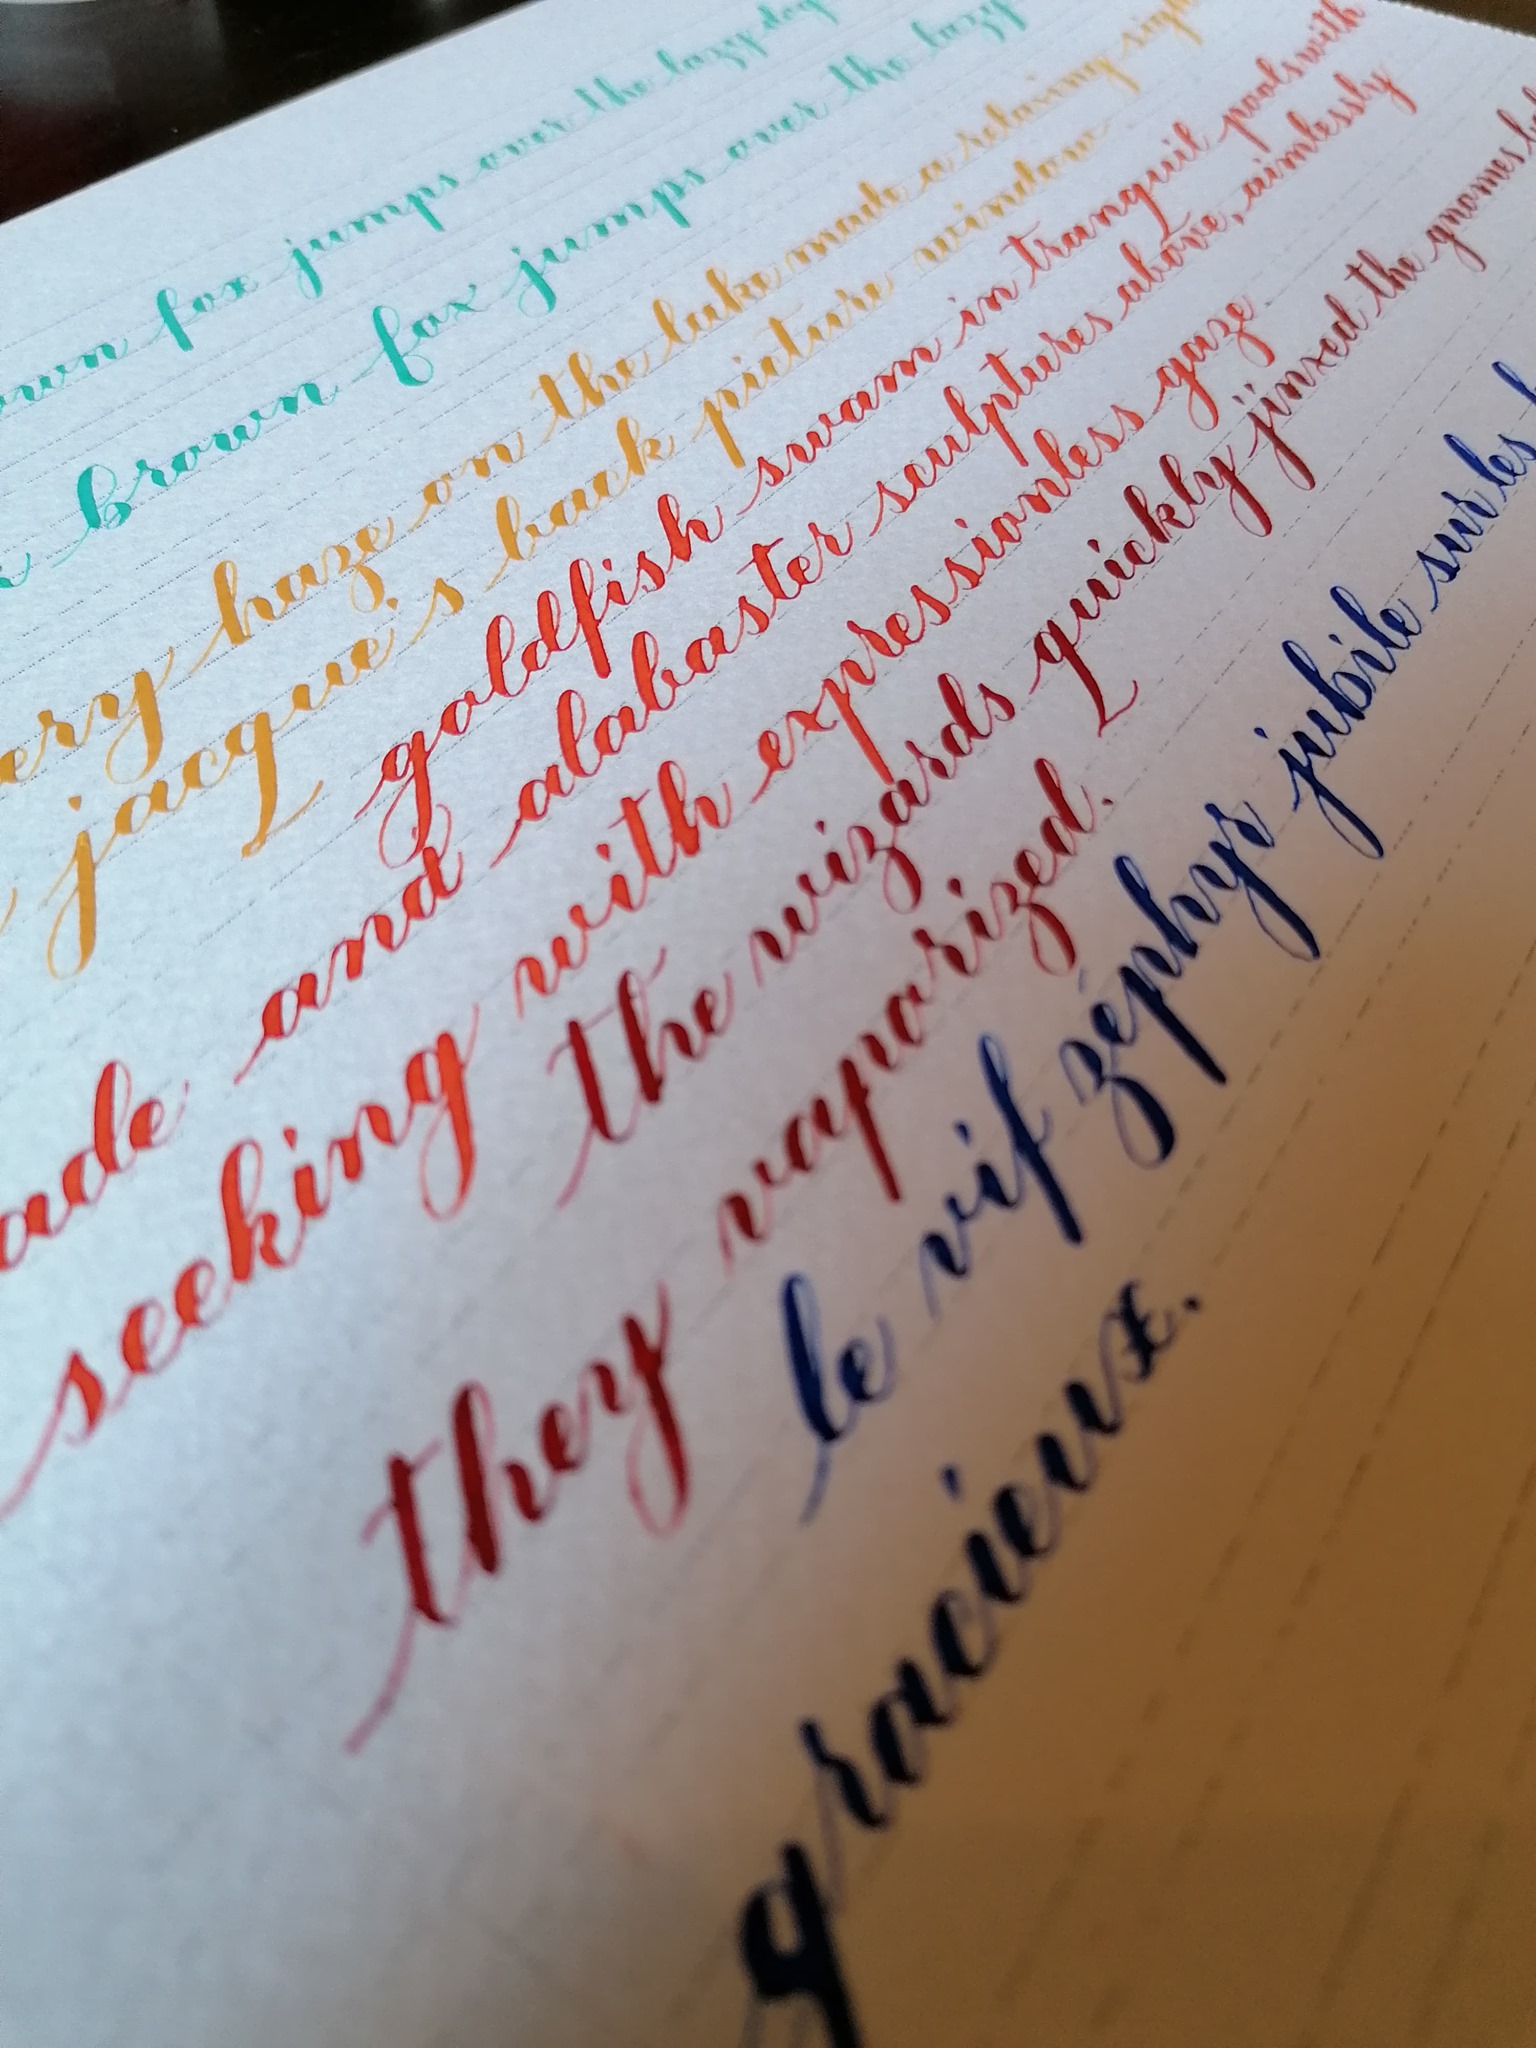 fox jumps over the lazy dog
brown fox jumps over the lazy
haze on the lake made a relaxing
jacque's back picture window
goldfish swam in tranquil pools with
and alabaster sculptures above, aimlessly
seeking with expressionless gaze
the wizards quickly jinxed the gnomes
they vaporized.
le vif zéphyr jubile sur les
gracieux.